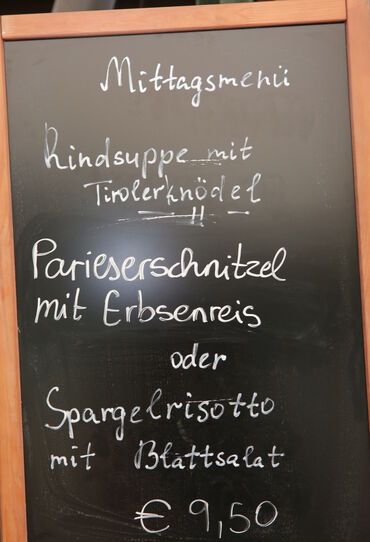 Mittagsmenü
Rindsuppe mit
Tirolerknödel
!!
Parieserschnitzel
mit Erbsenreis
oder
Spargelrisotto
mit Blattsalat
€ 9,50